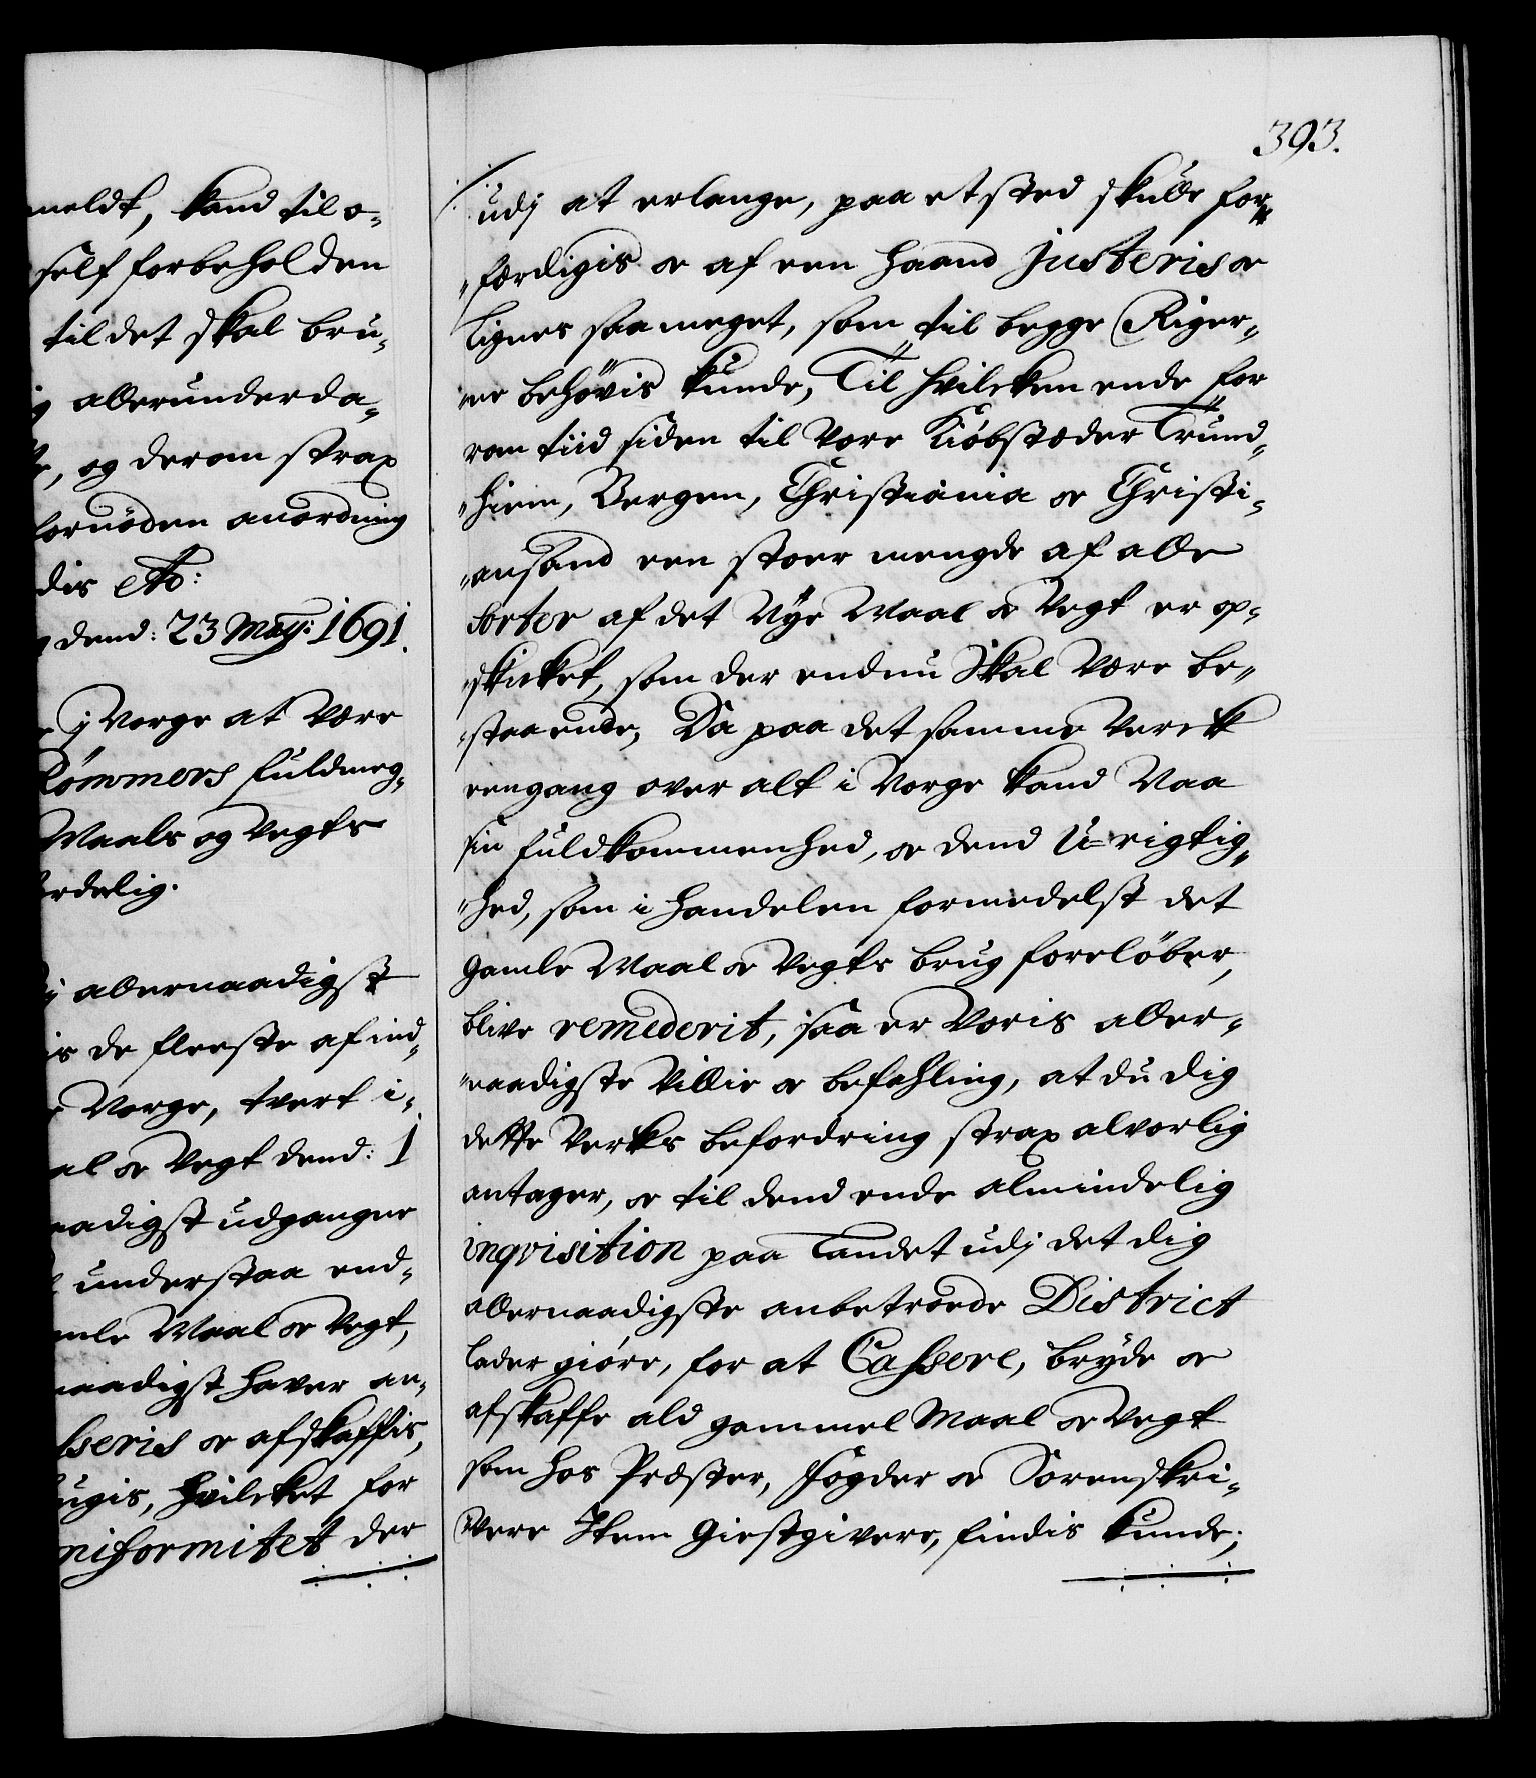 meldt, kand til o-
self forbeholden
til det skal bru-
allerunderda-
og derom strax
fornöden anordning
dis etc:
dend: 23 Maij: 1691.
j Norge at være
Römmers fuldmeg-
Maals og Vegts
allernaadigst
de fleeste af ind-
Norge, tvert i-
al oc Vegt dend: 1
naadigst udgangne
understaa end-
gamle Maal oc Vegt,
naadigst haver an-
sseris oc afskaffis,
ugis, hvilcket for
niformitet der
393.
/: udj at erlange, paa et sted skulle for-
færdigis oc af een haand justeris oc
lignes saa meget, som til begge Riger-
ne behövis kunde, Til hvilcken ende for
ran tiid siden til Vore Kiöbstæder Trund-
hiem, Bergen, Christiania oc Christi-
ansand een stoer mengde af alle
sorter af det Nye Maal oc Vegt er op-
skicket, som der endnu Skal Være be-
staaende, Da paa det samme Verck
eengang over alt i Norge kand Naa
sin fuldkommenhed, oc dend U-rigtig-
hed, som i handelen formedelst det
gamle Maal oc Vegts brug foreløber,
blive remederit, saa er Voris aller-
naadigste Villie oc befahling, at du dig
dette Verks befordring strax alvorlig
antager, oc til dend ende almindelig
inqvisition paa Landet udj det dig
allernaadigste anbetroede District
lader giöre, for at Cassere, bryde oc
afskaffe ald gammel Maal oc Vegt
som hos Præster, Fogder oc Sorenskri-
vere Item Giestgivere, findis kunde;